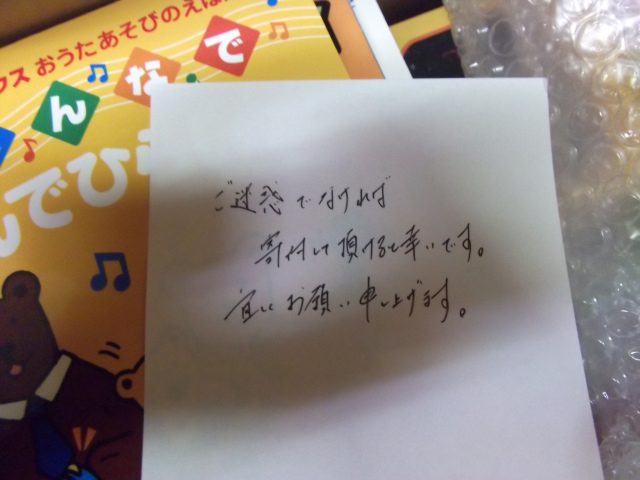 クス おうたあそびのえほ
んなで
んでひ
ご迷惑でなければ
寄付して頂けると幸いです。
宜しくお願い申し上げます。